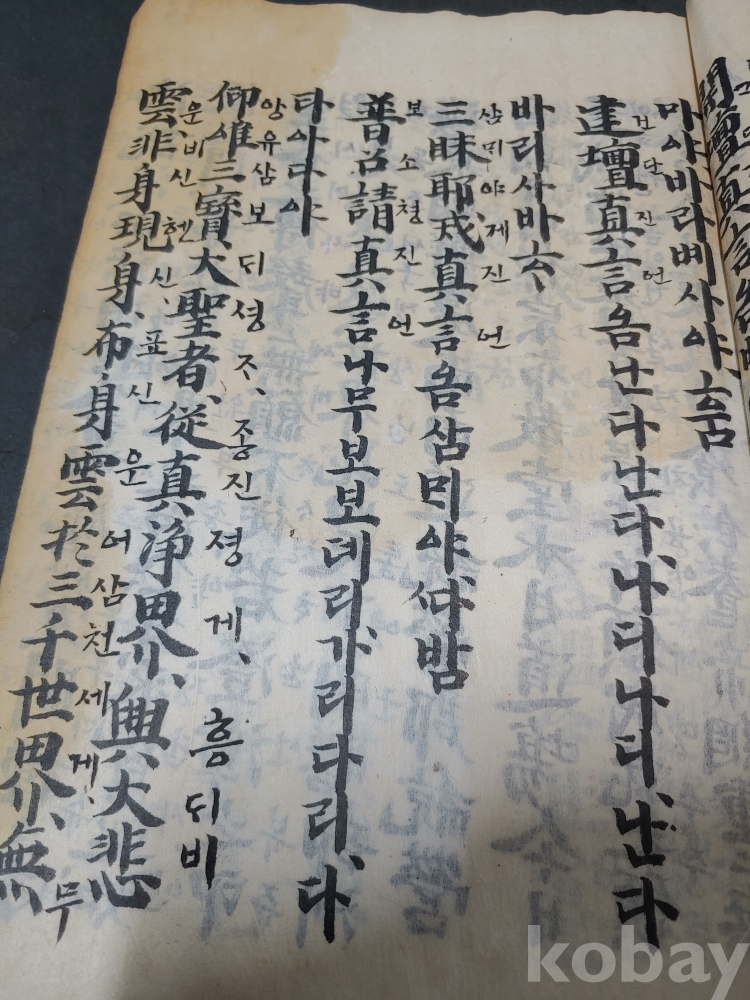 開壇真言
마아바라볘사야、훔
建壇真言옴난다난다、나디나디、난다
건단진언
바리사바하、
三昧耶戒真言옴삼믜야、사다밤
삼믜야、계진언
普召請真言나무보보데리가리다리、다
보소청진언
타아다야
仰惟三寶大聖者、從真淨界、興大悲
앙유삼보ᄃᆡ셩ᄌᆞ、종진졍계、흥ᄃᆡ비
雲、非身現身、布身雲於三千世界、無
운비신현신、표신운어삼천세계、무
kobay